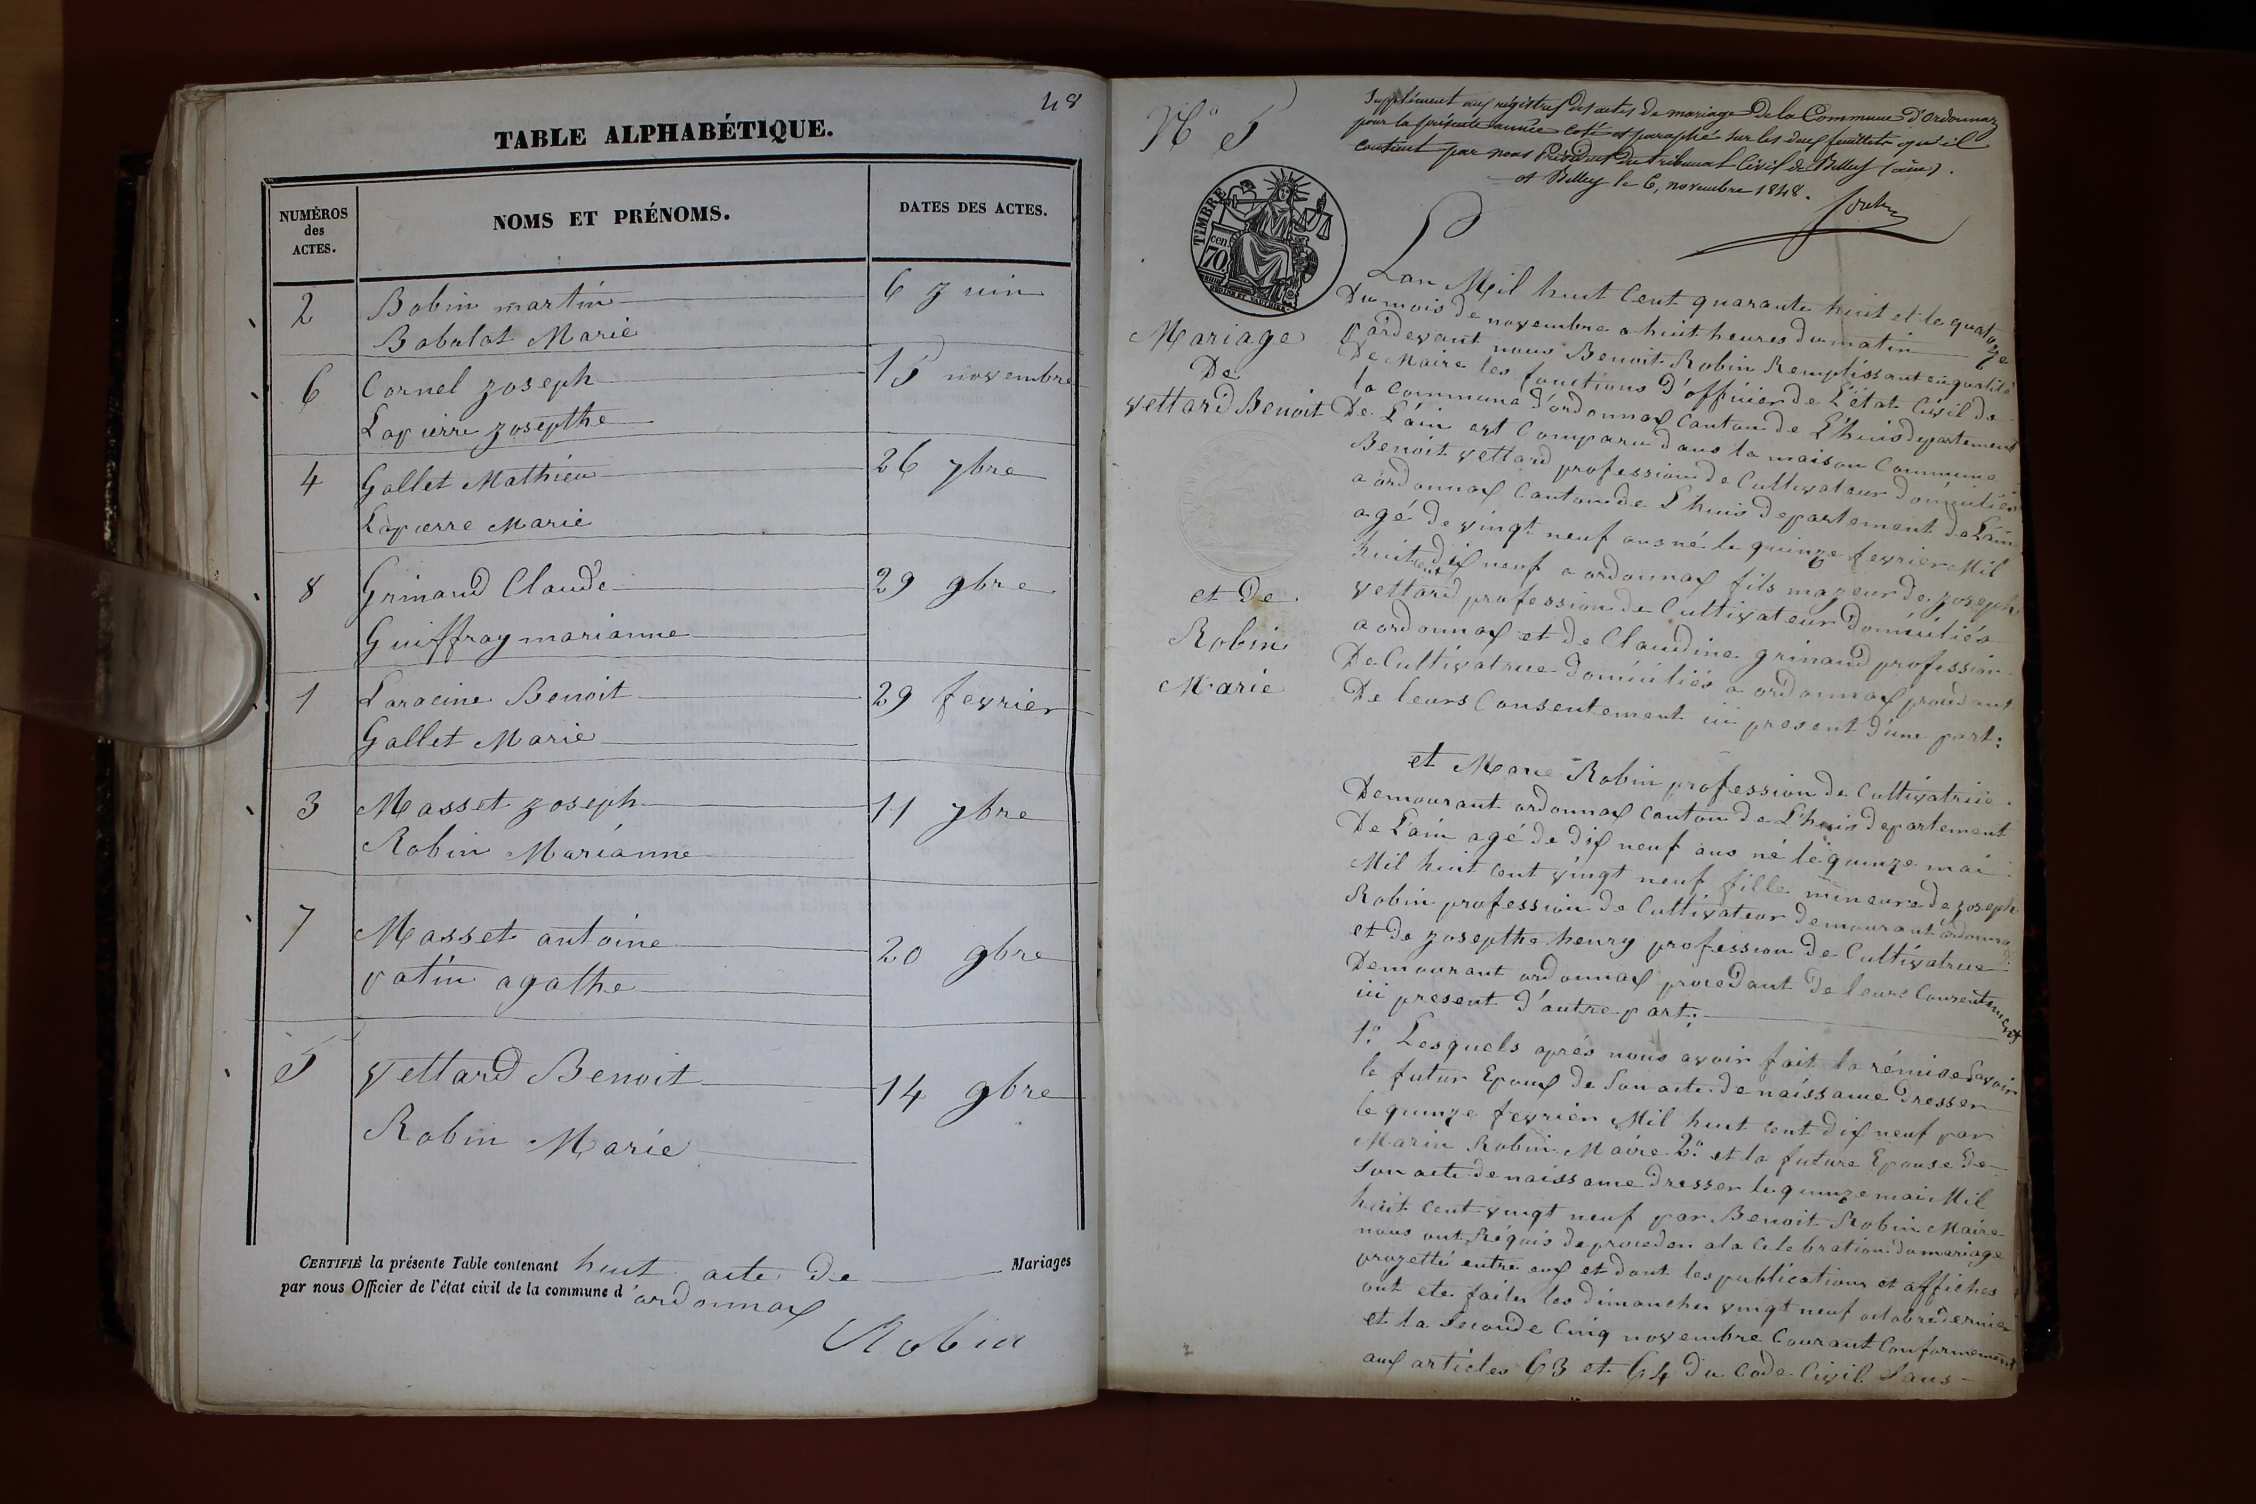 48
TABLE ALPHABÉTIQUE.
NUMÉROS
des
ACTES.
NOMS ET PRÉNOMS.
DATES DES ACTES.
2 Bobin martin 6 zuin
Babolat Marie
6 Cornel zoseph 15 novembre
Lapierre zosepthe
4 Gallet Mathieu 26 7bre
Lapierre Marie
8 Grinand Claude 29 9bre
Guiffray marianne
1 Laracine Benoit 29 fevrier
Gallet Marie
3 Masset zoseph 11 7bre
Robin Marianne
7 Masset antoine 20 9bre
patin agathe
5 Vettard Benoit 14 9bre
Robin Marie
CERTIFIÉ la présente Table contenant huit acte de Mariages
par nous Officier de l'état civil de la commune d'ordonnax
Robin
N° 5
Supplément aux régistres des actes de mariage de la Commune d'Ordonnaz
pour la présente année coté et paraphé sur les deux feuillets qu'il
contient par nous Président du tribunal Civil de Belley (ain).
A Belley le 6, novembre 1848.
TIMBRE
70 cen.
Mariage
De
Vettard Benoit
et De
Robin
Marie
Lan Mil huit Cent quarante huit et le quatorze
Du mois de novembre a huit heures du matin
pardevant nous Benoit Robin Remplissant en qualité
De Maire les fonctions D'officier de L'état Civil de
la Commune d'ordonnax Canton de L'huis departement
De L'ain est Comparu dans la maison Commune
Benoit Vettard profession de Cultivateur domiciliés
a ordonnax Canton de L'huis departement de L'ain
agé de vingt neuf ans né le quinze fevrier Mil
huit cent dix neuf a ordonnax fils mazeur de zoseph
Vettard profession de Cultivateur domiciliés
a ordonnax et de Claudine grinand profession
De Cultivatrice domiciliés a ordonnax procedant
De leurs Consentement ici present d'une part:
et Marie Robin profession de Cultivatrice
Demourant ordonnax Canton de L'huis departement
De L'ain agé de dix neuf ans né le quinze mai
Mil huit Cent vingt neuf fille mineure de zoseph
Robin profession de Cultivateur demourant ordonnax
et de zosepthe henry profession de Cultivatrice
Demourant ordonnax procedant De leurs Consentement
ici present d'autre part:
1.° Lesquels aprés nous avoir fait la rémise Savoir
le futur Epoux de Son acte de naissance dresser
le quinze fevrier Mil huit Cent dix neuf par
Marin Robin Maire 2.° et la future Epouse de
Son acte de naissance dresser le quinze mai Mil
huit Cent vingt neuf par Benoit Robin Maire
nous ont Réquis de proceder a la Celebration du mariage
prozetté entre eux et dont les publications et affiches
ont ete faites les dimanches vingt neuf octobre dernier
et la Seconde Cinq novembre Courant Conformement
aux articles 63 et 64 du Code Civil Sans